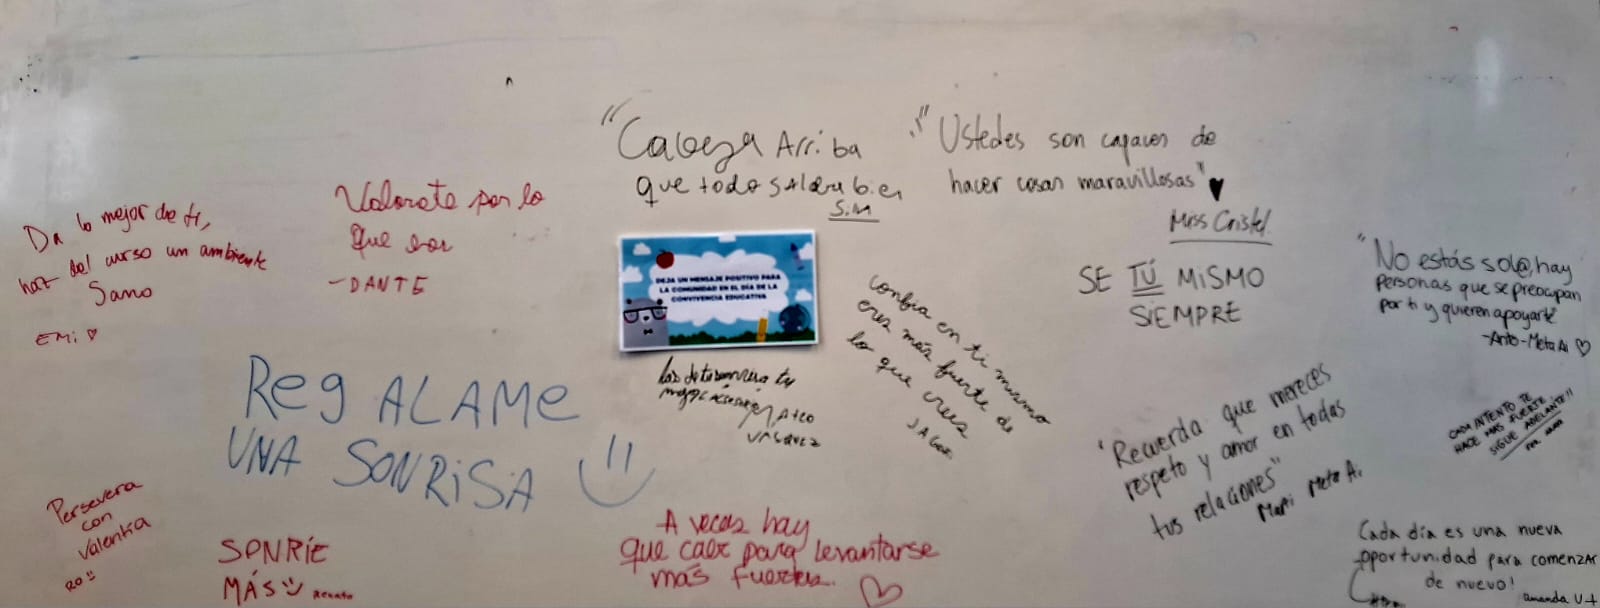 "Cabeza Arriba
que todo saldra bien
S.M
"Ustedes son capaces de
hacer cosas maravillosas"
Miss Cristel
Da lo mejor de ti,
haz del curso un ambiente
Sano
EMi
Valorate por lo
que eres
-DANTE
DEJA UN MENSAJE POSITIVO PARA
LA COMUNIDAD EN EL DÍA DE LA
CONVIVENCIA EDUCATIVA
confia en ti mismo
eres más fuerte de
lo que crees
SE TÚ MISMO
SIEMPRE
"No estás sol@, hay
personas que se preocupan
por ti y quieren apoyarte
-Anto-Meta Ai
RegALAME
UNA SONRiSA
tu
mejor
VASQUEZ
"Recuerda que mereces
respeto y amor en todas
tus relaciones"
Mari Meta A.
CADA INTENTO TE
HACE MAS FUERTE
SIGUE ADELANTE!!
Persevera
con
Valentia
RO
SONRIE
MÁS
Renato
A veces hay
que caer para levantarse
más fuertes.
Cada día es una nueva
oportunidad para comenzar
de nuevo!
amanda U